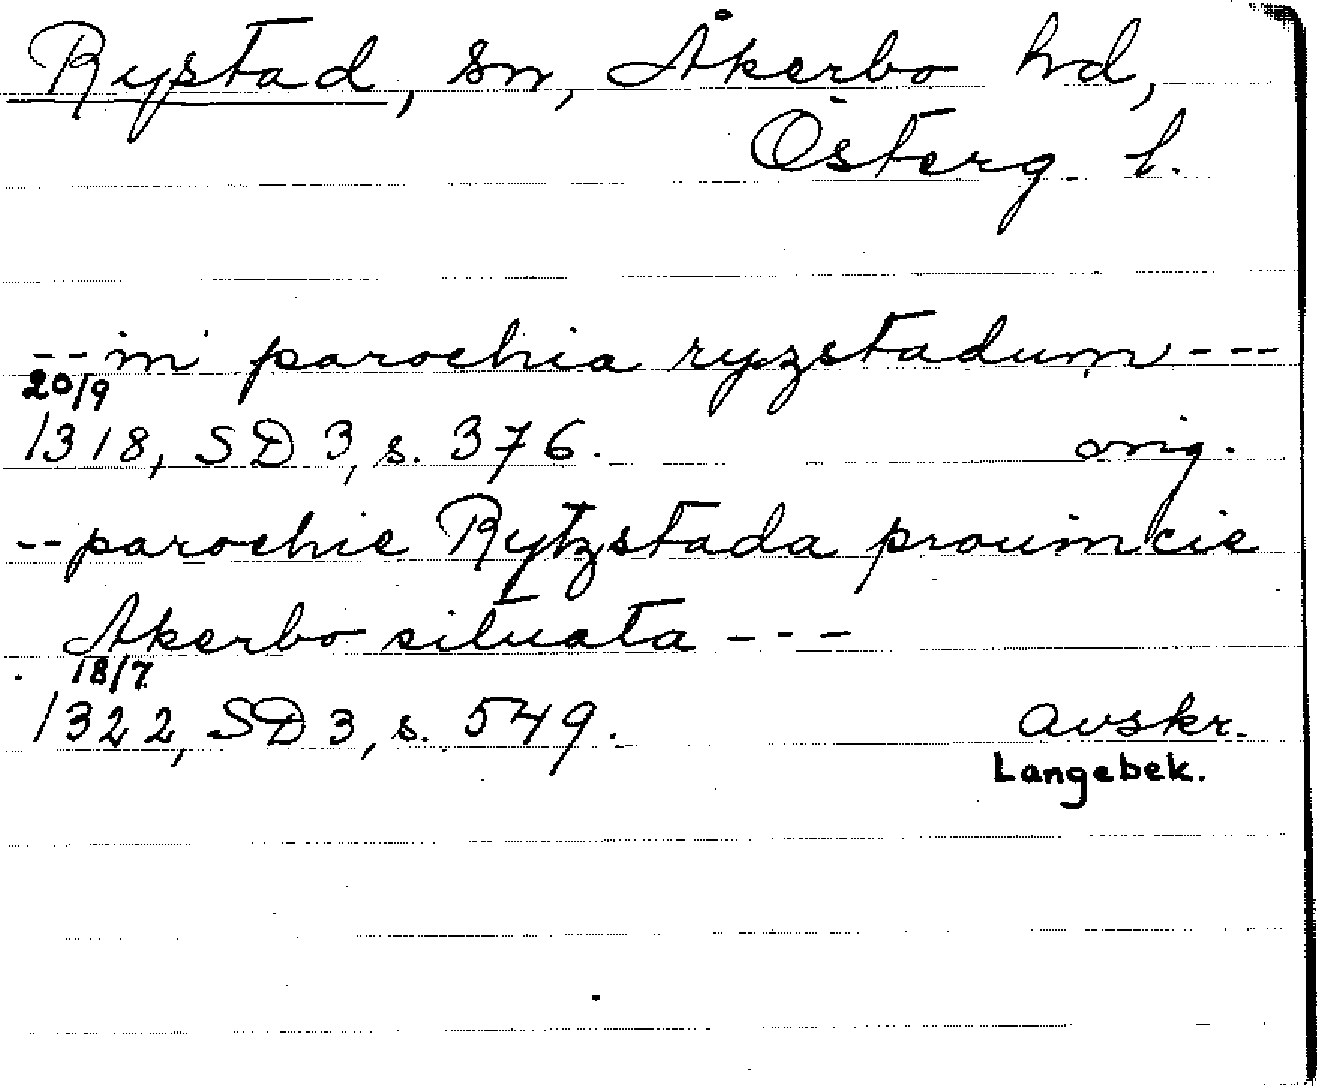 Rystad, sn, Åkerbo hd,
Österg. l.
-- in parochia ryzstadum ---
20/9
1318, SD 3, s. 376. orig.
-- parochie Rytzstada prouincie
Akerbo situata ---
18/7
1322, SD 3, s. 549. avskr.
Langebek.